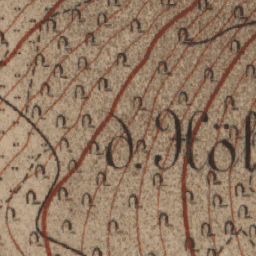 d. Höl